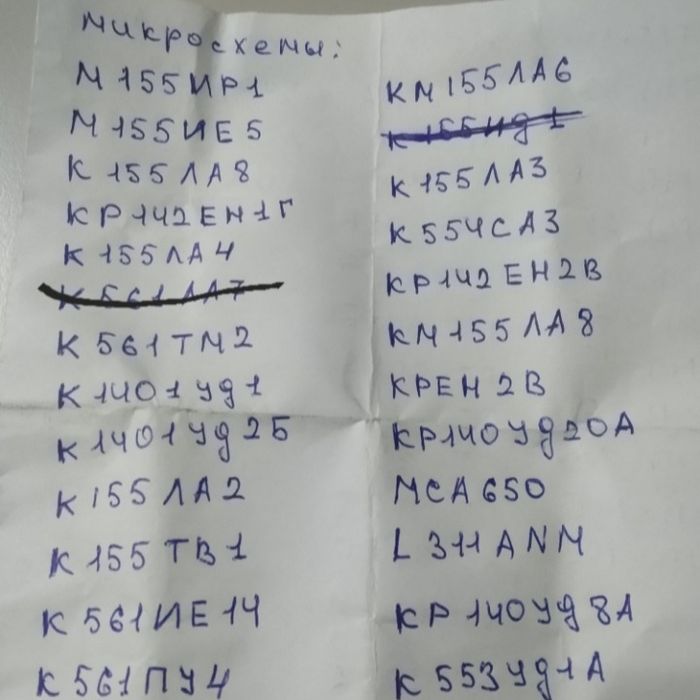 Микросхемы:
М155ИР1
М155ИЕ5
К 155ЛА8
КР142ЕН1Г
К 155ЛА4
К 561ЛА7
К 561ТМ2
К1401УД1
К1401УД2Б
К155ЛА2
К 155ТВ1
К 561ИЕ14
К 561ПУ4
КМ155ЛА6
К 155ИД1
К 155ЛА3
К554СА3
КР142ЕН2В
КМ155ЛА8
КРЕН2В
КР140УД20А
МСА650
L311ANM
КР140УД8А
К 553УД1А